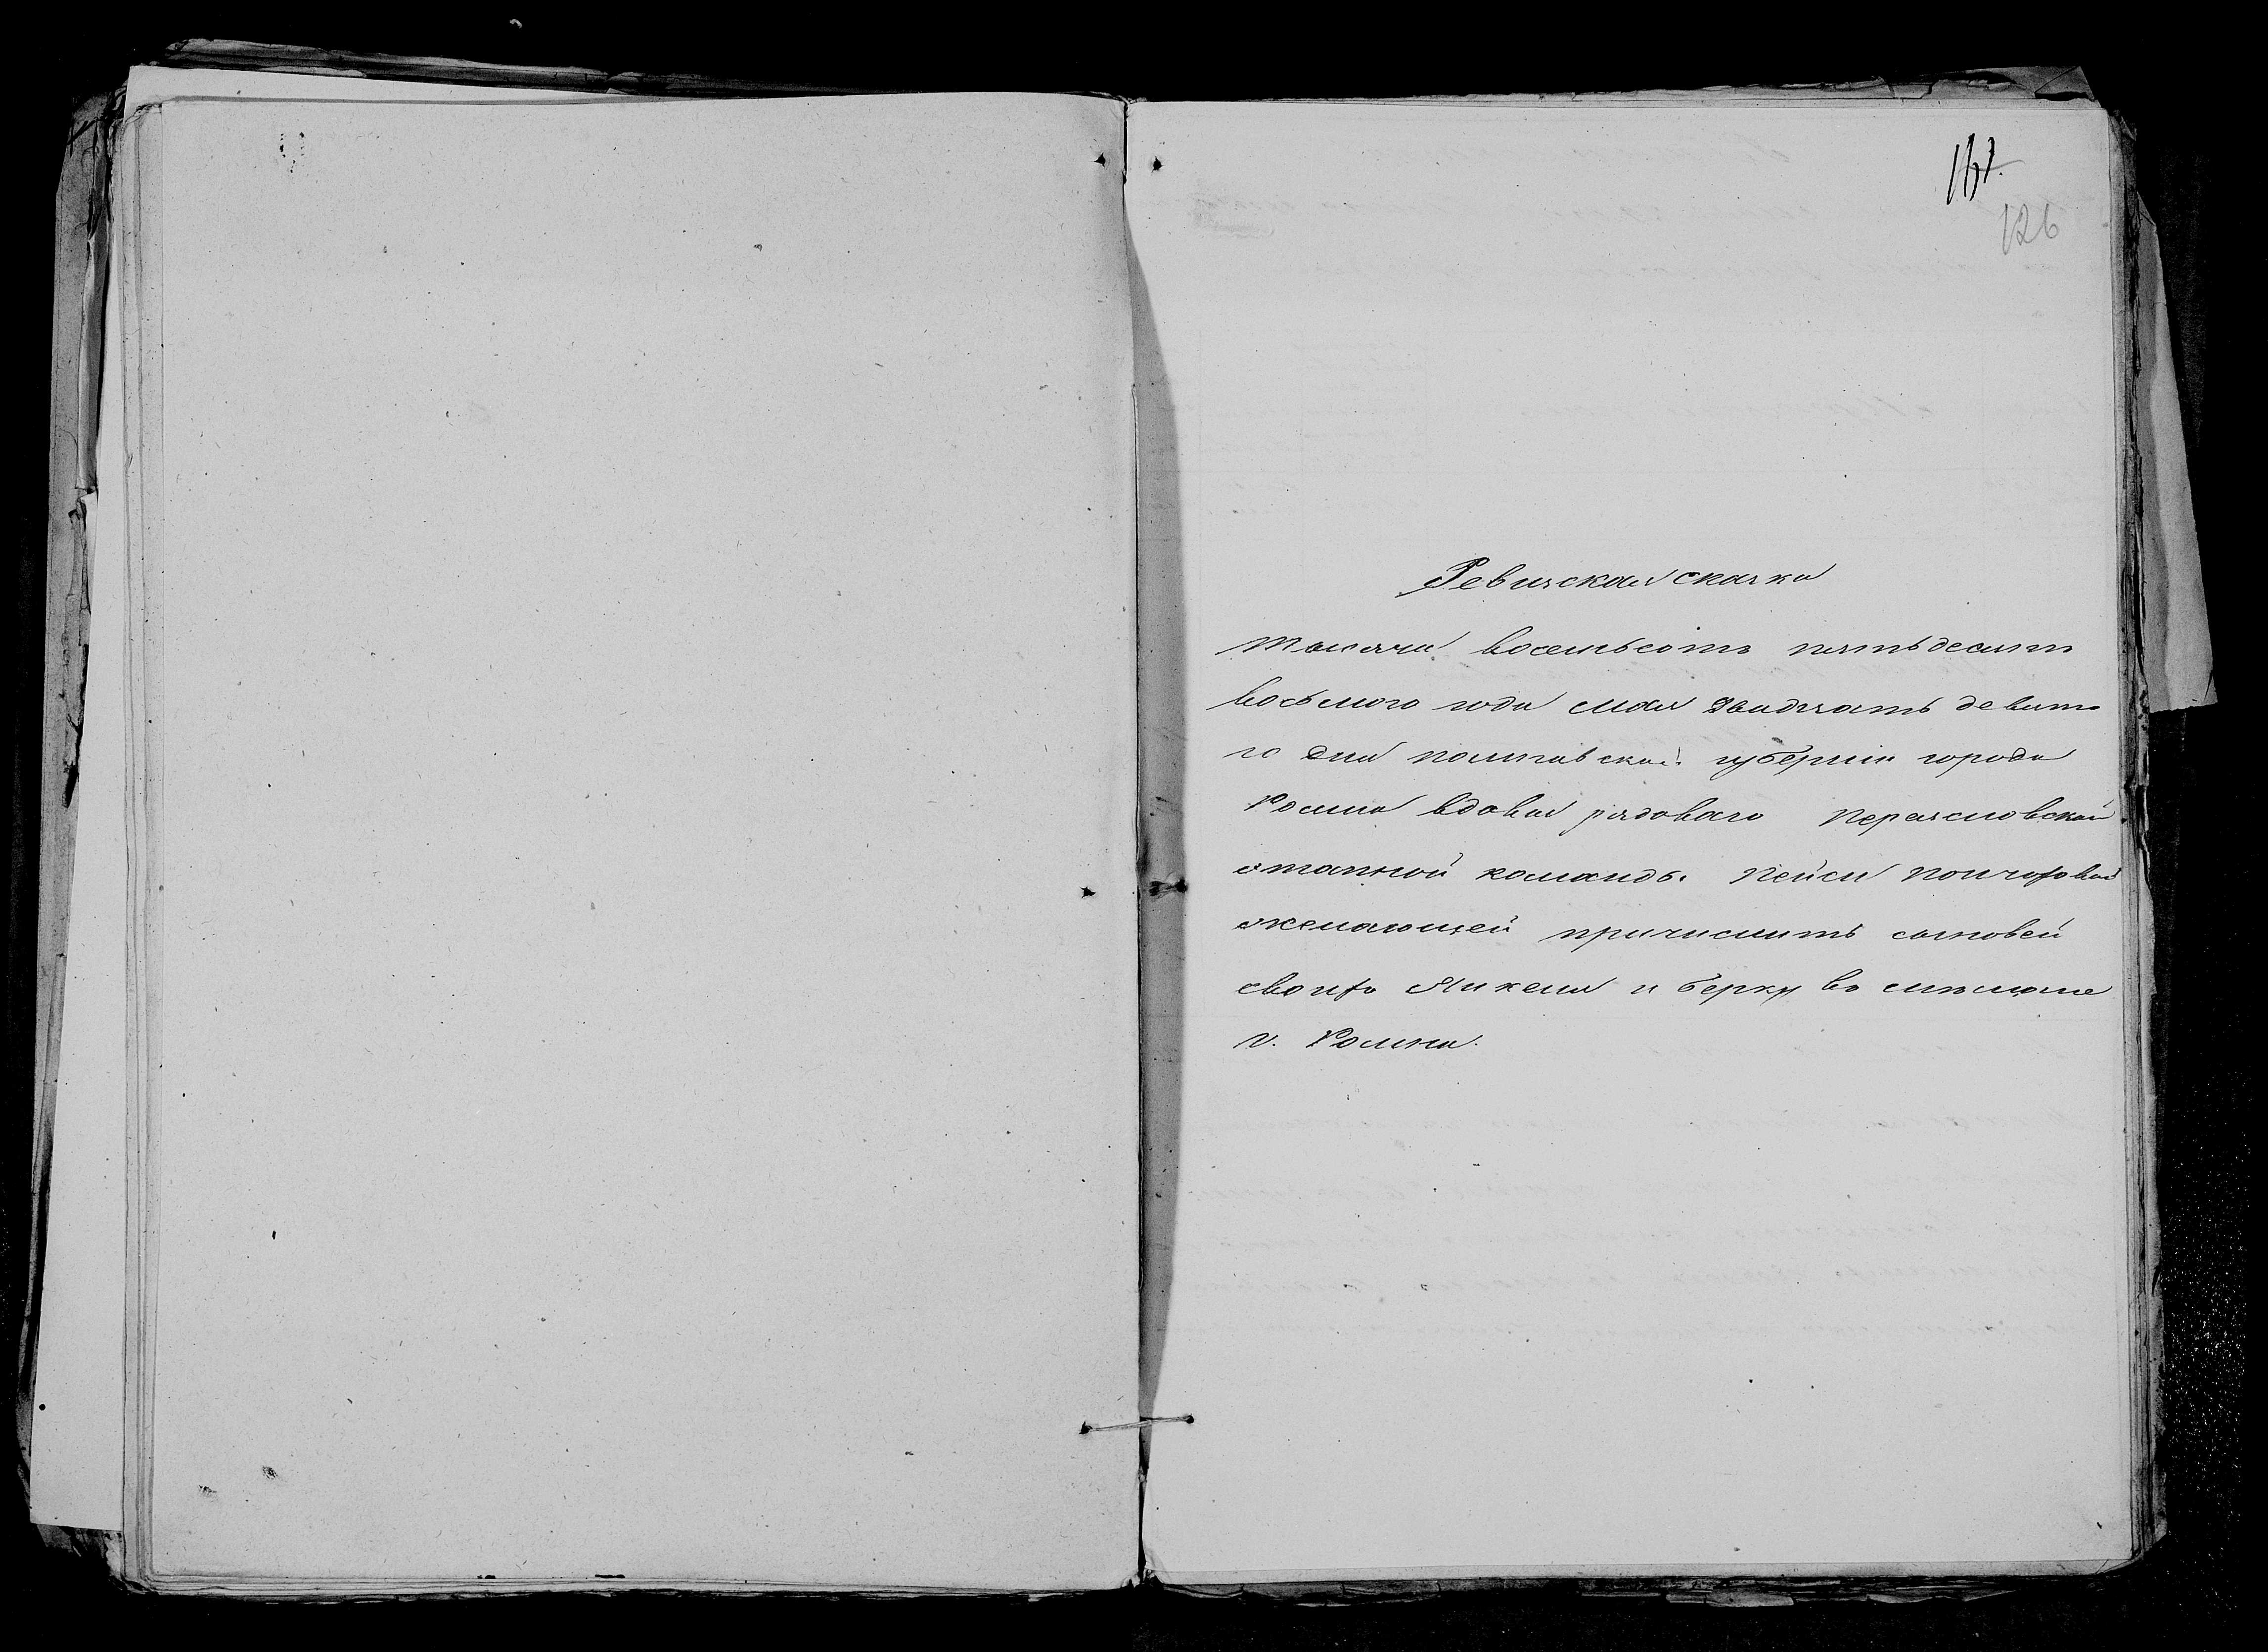 126
Ревизская сказка
тысяча восемьсотъ пятьдесятъ
восьмого года мая двадцать девято
го дня полтавской губерніи города
Ромна вдовы рядоваго Переясловской
этапной команды Пейси
желающей причислить сыновей
своихъ и Берку въ мѣщане
г. Ромна.